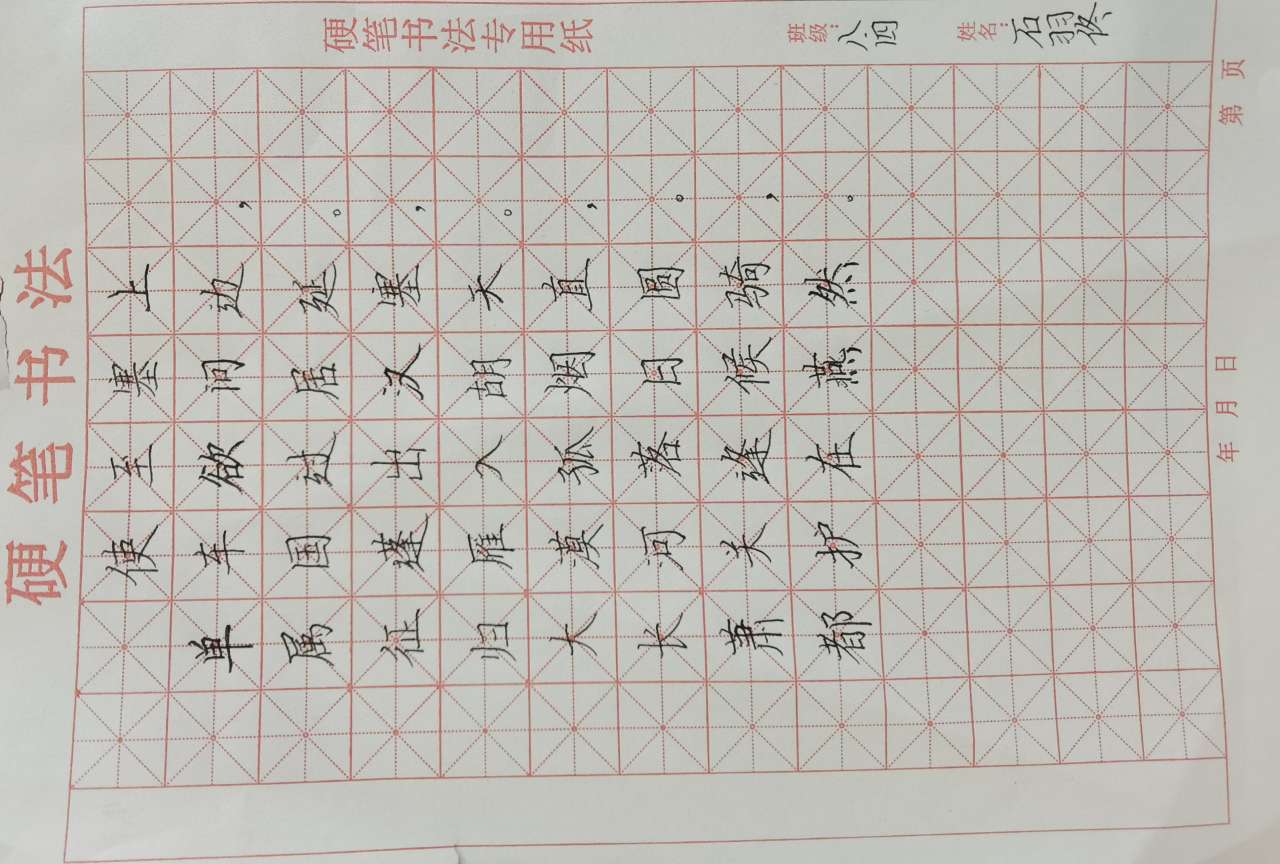 硬笔书法
使至塞上
单车欲问边，
属国过居延。
征蓬出汉塞，
归雁入胡天。
大漠孤烟直，
长河落日圆。
萧关逢候骑，
都护在燕然。
硬笔书法专用纸
班级：八.四
姓名：石
年 月 日
第 页